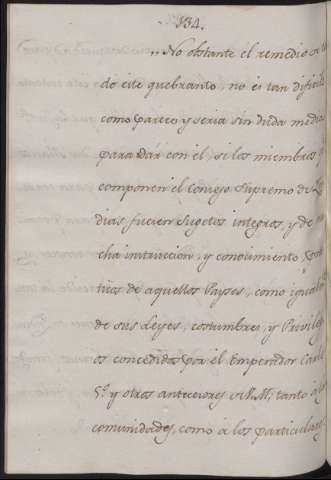 134.
"No obstante el remedio a to
do este quebranto, no es tan dificil
como parece y seria sin duda medio
para dár con él, si los miembros q
componen el Consejo Supremo de In
dias fuesen Sugetos integros, y de mu
cha instruccion, y conocimiento prac
tico de aquellos Payses, como igualm
de sus Leyes, costumbres, y Privileg
os concedidos por el Emperador Carl
5º y otros antecesores
tanto á
comunidades, como á los particulare